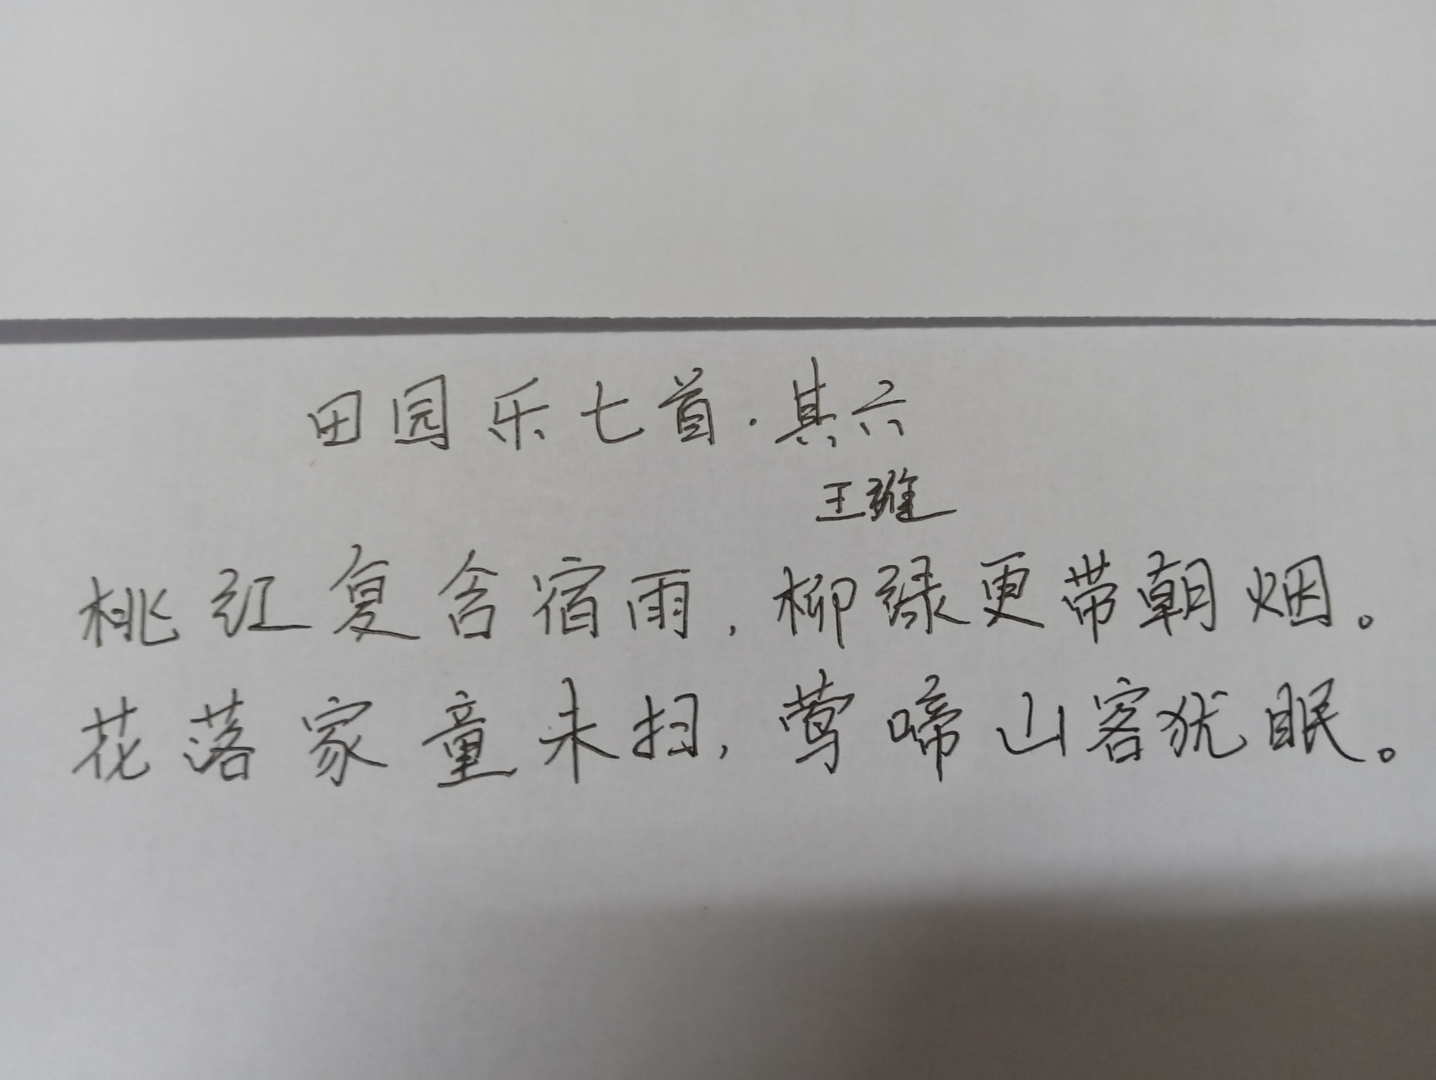 田园乐七首·其六
王维
桃红复含宿雨，柳绿更带朝烟。
花落家童未扫，莺啼山客犹眠。